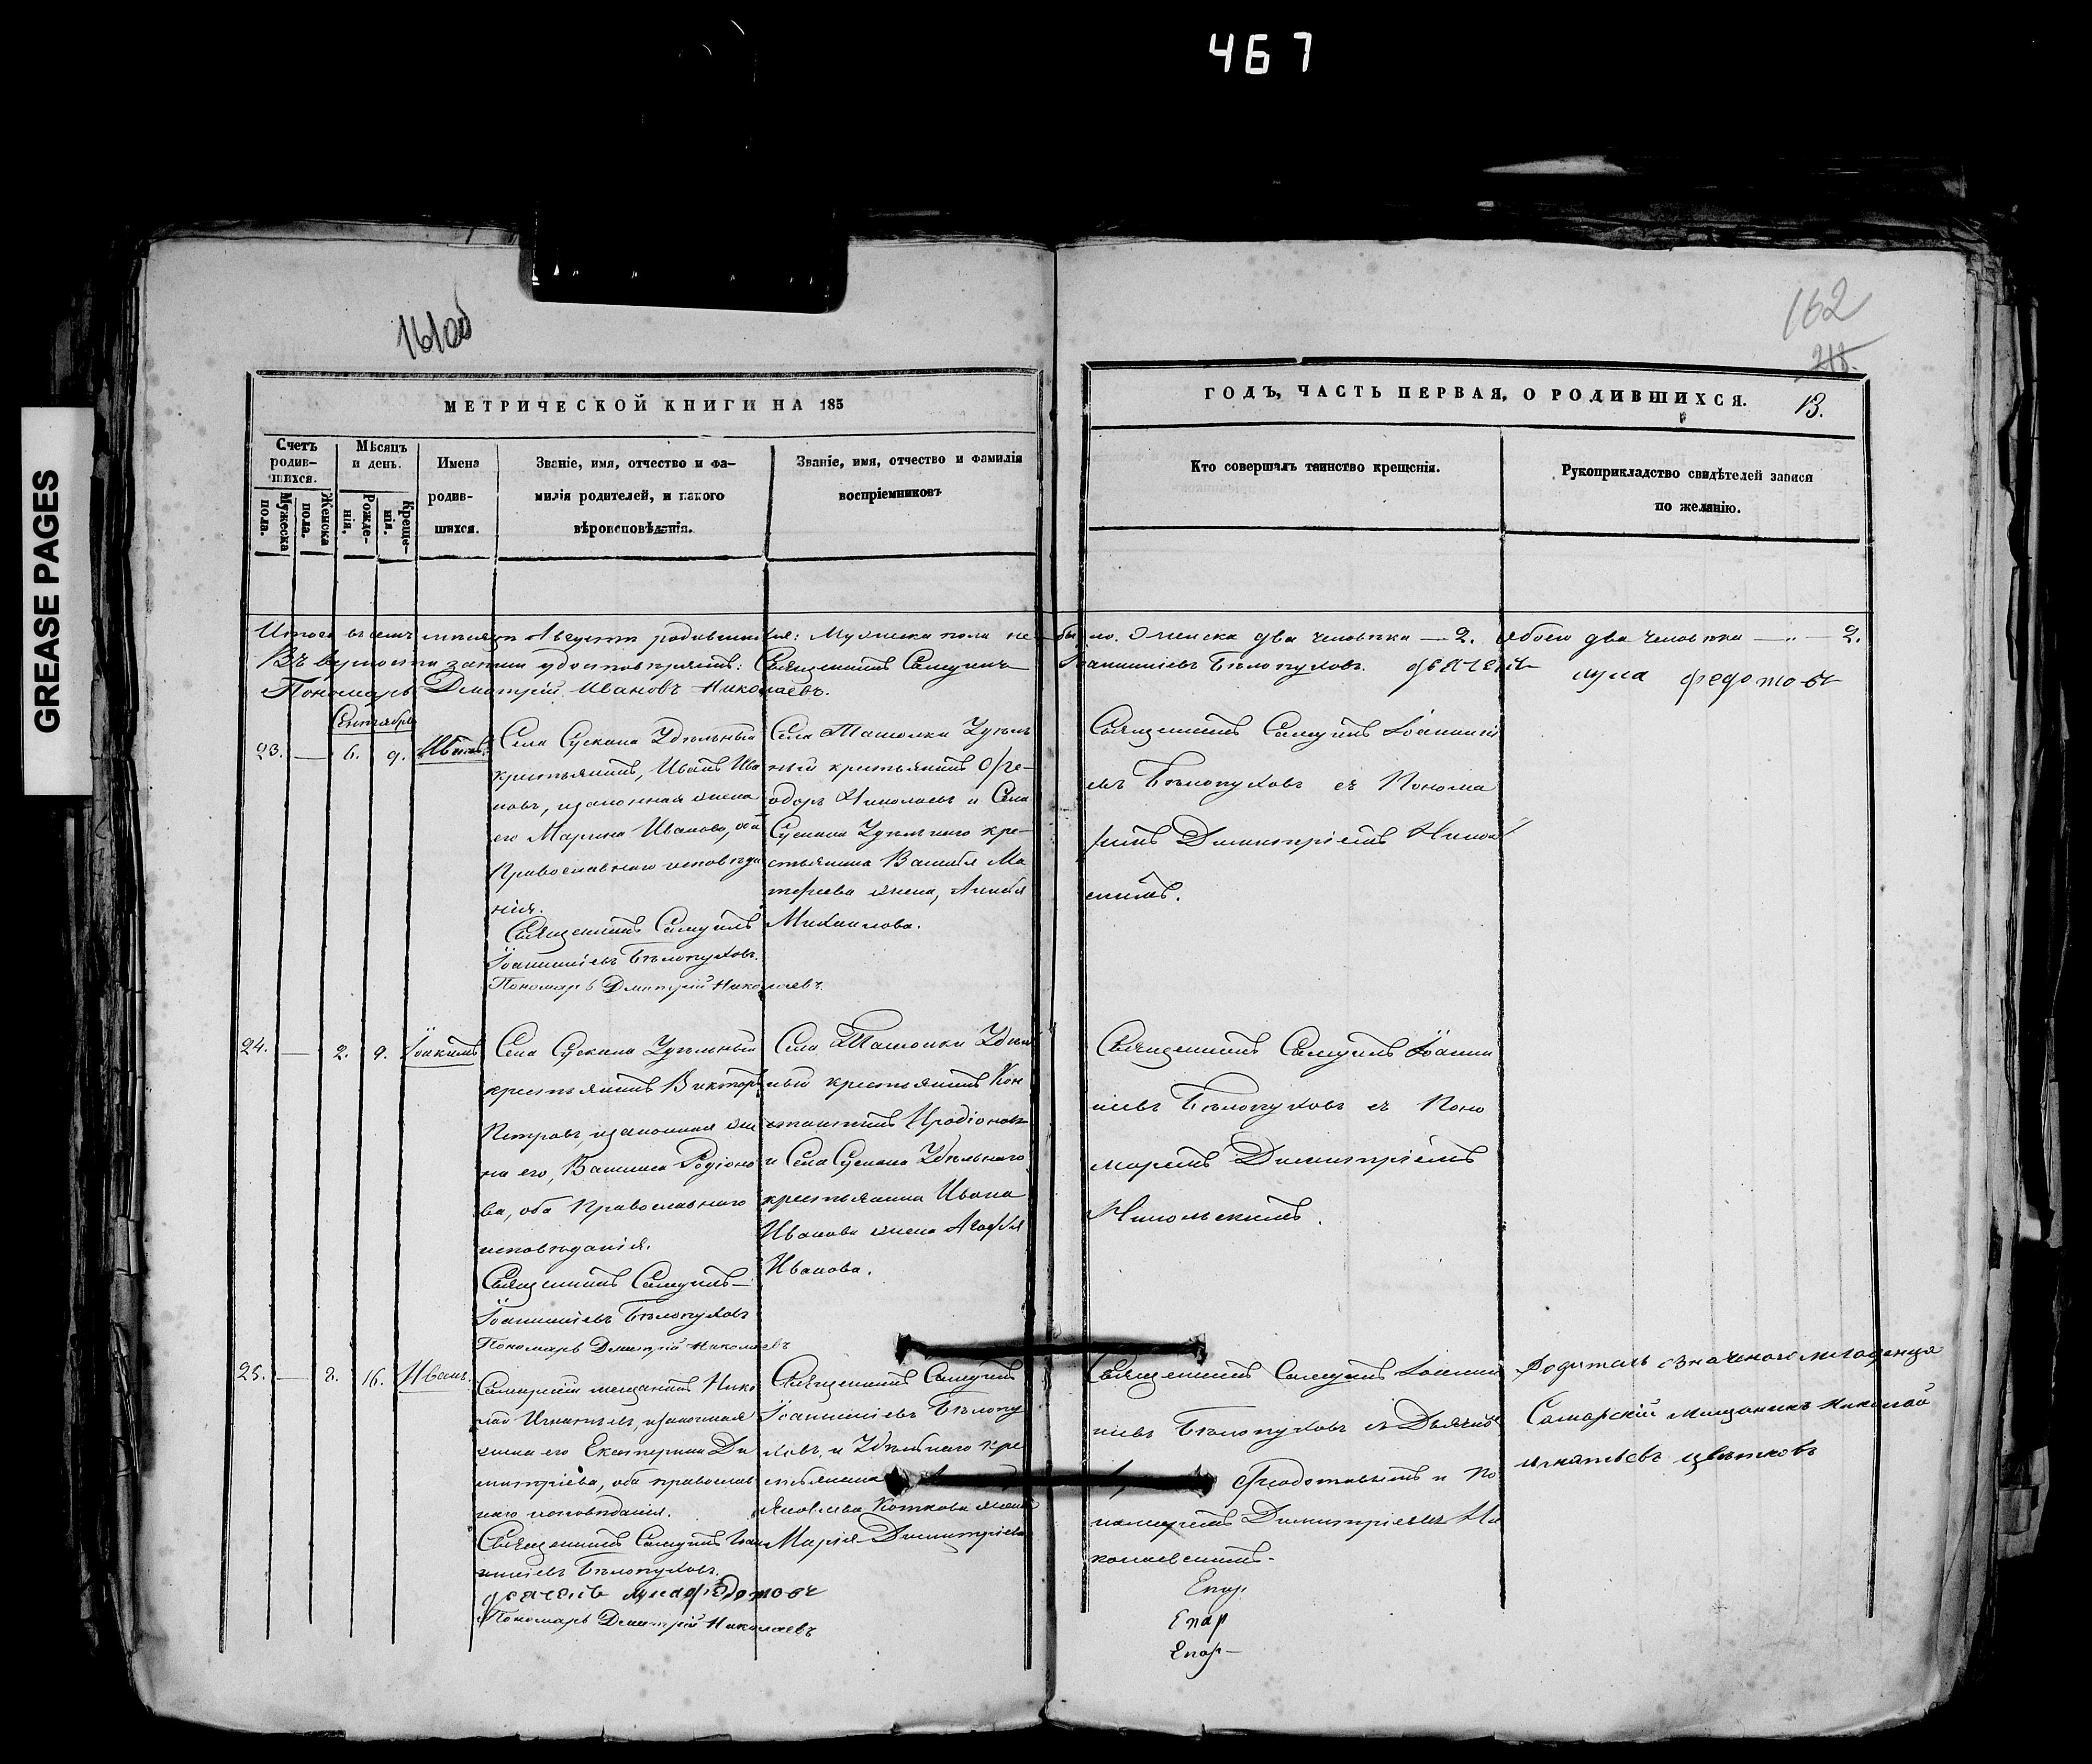 467
GREASE PAGES
161об
162
218.
МЕТРИЧЕСКОЙ КНИГИ НА 185
ГОДЪ, ЧАСТЬ ПЕРВАЯ, О РОДИВШИХСЯ.
13.
Счетъ родив-шихся.
Мужеска пола.
Женска пола.
Мѣсяцъ и день.
Рожде-нія,
Креще-нія.
Имена
родив-
шихся.
Званіе, имя, отчество и фа-
милія родителей, и какого
вѣроисповѣданія.
Званіе, имя, отчество и фамилія
воспріемниковъ
Кто совершалъ таинство крещенія.
Рукоприкладство свидѣтелей записи
по желанію.
Итого въ семъ мѣсяцѣ Августѣ родившихся: Мужеска пола не было. Женска два человѣка — 2. Обоего два человѣка — „ — 2.
Въ вѣрности записи удостовѣряютъ: Священникъ Самуилъ Іоанникіевъ Бѣлопуховъ. дьячекъ лука федотовъ
Пономарь Дмитрій Ивановъ Николаевъ.
Сентябрь
23. — 6. 9. Иванъ.
Села Сускана Удѣльный
крестьянинъ, Иванъ Ива
новъ, и законная жена
его Марина Иванова, оба
Православнаго исповѣда
нія.
Священникъ Самуилъ
Іоанникіевъ Бѣлопуховъ.
Пономарь Дмитрій Николаевъ.
Села Ташолки Удѣль
ный крестьянинъ Ѳе-
одоръ Николаевъ и Села
Сускана Удѣльнаго кре-
стьянина Василія Ма
тѳеева жена,
Михаилова.
Священникъ Самуилъ Іоанникі
евъ Бѣлопуховъ съ Понома
ремъ Димитріемъ Никола
евымъ.
24. — 2. 9. Іоакимъ
Села Сускана Удѣльный
крестьянинъ Викторъ
Петровъ, и законная же
на его, Василиса Родіоно
ва, оба Православнаго
исповѣданія.
Священникъ Самуилъ
Іоанникіевъ Бѣлопуховъ
Пономарь Дмитрій Николаевъ
Села Ташолки Удѣль
ный крестьянинъ Кон
стантинъ Иродіоновъ
и Села Сускана Удѣльнаго
крестьянина Ивана
Иванова жена Агафія
Иванова.
Священникъ Самуилъ Іоанни
кіевъ Бѣлопуховъ съ Поно
маремъ Димитріемъ
Никольскимъ.
25. — 8. 16. Иванъ.
Самарскій мещанинъ Нико
лай Игнатьевъ, и законная
жена его Екатерина Ди
митріева, оба православ
наго исповѣданія.
Священникъ Самуилъ Іоан
никіевъ Бѣлопуховъ.
дьячекъ лука федотовъ
Пономарь Дмитрій Николаевъ
Священникъ Самуилъ
Іоанникіевъ Бѣлопу
ховъ, и Удѣльнаго кре
стьянина
Яковлева Коткова жена
Марія Димитріева
Священникъ Самуилъ Іоанни
кіевъ Бѣлопуховъ съ Дьячкомъ
Ѳеодотовымъ и По
номаремъ Димитріемъ Ни
колаевскимъ.
Епар
Епар
Епар
Родитель означеного младенца
Самарскій мещанинъ николай
игнатьевъ цветковъ